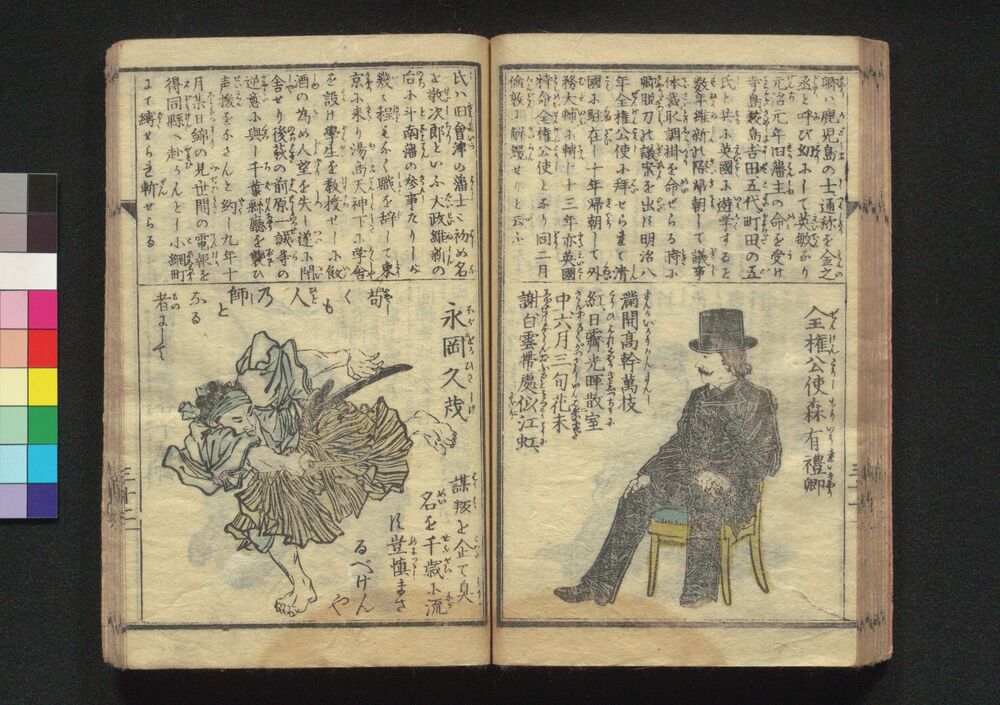 卿ハ鹿児島の士通称を金之
丞と呼び幼ふして英敏なり
元治元年旧藩主の命を受け
寺島鮫島吉田五代町田の五
氏と共ふ英國ふ遊学するを
数年維新の際帰朝して議事
体裁取調掛を命ぜらる時ふ
廃脱刀の議案を出す明治八
年全権公使ふ拝せられて清
國ふ駐在し十年帰朝して外
務大輔ふ轉ト十三年亦英國
特命全権公使となり同二月
倫敦ふ解纜せりと云ふ
全権公使森有禮卿
満開髙幹萬枝
紅日霽光畔散室
中六月三旬花未
謝白雲帶處似江虹
氏ハ旧會津の藩士ふ初め名
を敬次郎といふ大政維新の
后小斗南藩の参事たりしが
幾く程なく職を辞して東
京ふ来り湯島天神下ふ学舎
を設け學生を教授せしふ飲
酒の為め人望を失し遂ふ閉
舎せり後萩の前原一誠等の
逆意ふ與し千葉縣廳を襲ひ
声援をなさんと約し九年十
月某日錦の見世間の電報を
得同縣へ赴かんとし小網町
にて縛せられ斬せらる
永岡久茂
苟くも人乃師と
なる者にして
謀叛を企て臭
名を千歳ふ流
す豈慎まざ
るべけん
や
三十二